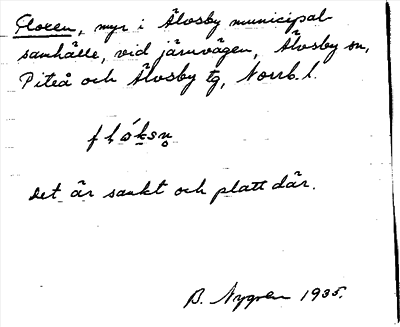 Floxen, myr i Älvsby municipal-
samhälle, vid järnvägen, Älvsby sn,
Piteå och Älvsby tg, Norrb. l.
flóksṇ
Det är sankt och platt där.
B. Nygren 1935.